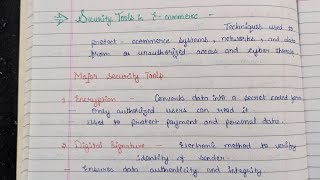 Security Tools in E-commerce -
Techniques used to
protect ecommerce systems, networks, and data
from or unauthorized access and cyber threats
Major Security Tools
1. Encryption Converts data into a secret coded form
- Only authorized users can read it.
- Used to protect payment and personal data.
2. Digital Signature - Electronic method to verify
identity of sender.
- Ensures data authenticity and integrity.